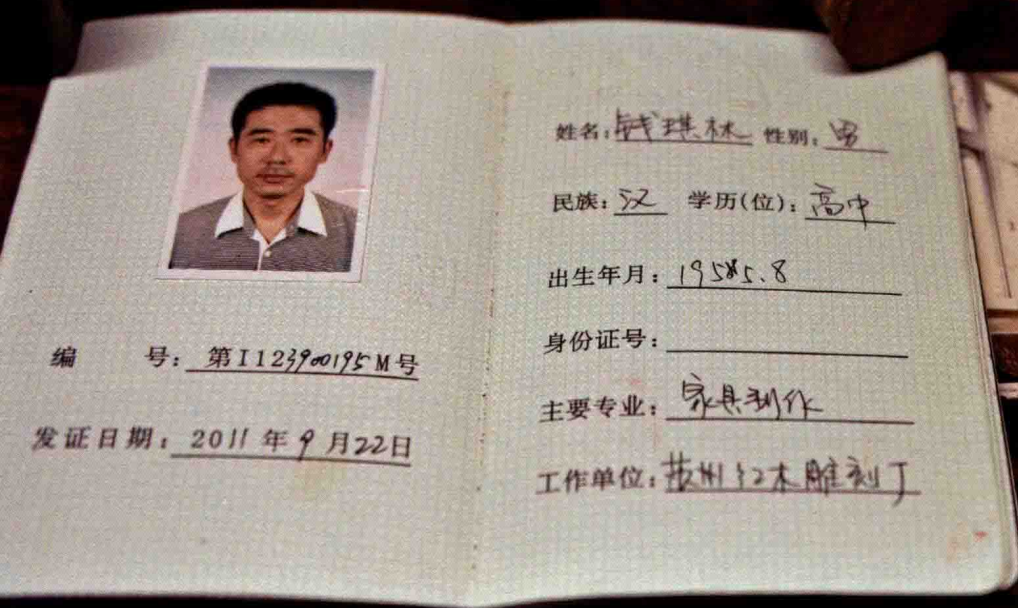 编 号：第I123900195M号
发证日期：2011年9月22日
姓名：钱琪林 性别：男
民族：汉 学历(位)：高中
出生年月：
身份证号：
主要专业：家具制作
工作单位：苏州红木雕刻厂